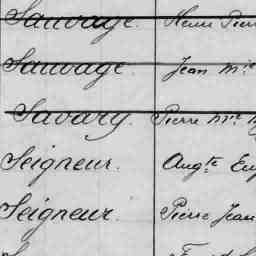 Sauvage. Henri Pierr
Sauvage. Jean Mie
Savary. Pierre Mie
Seigneur. Augte Eug
Seigneur. Pierre Jean